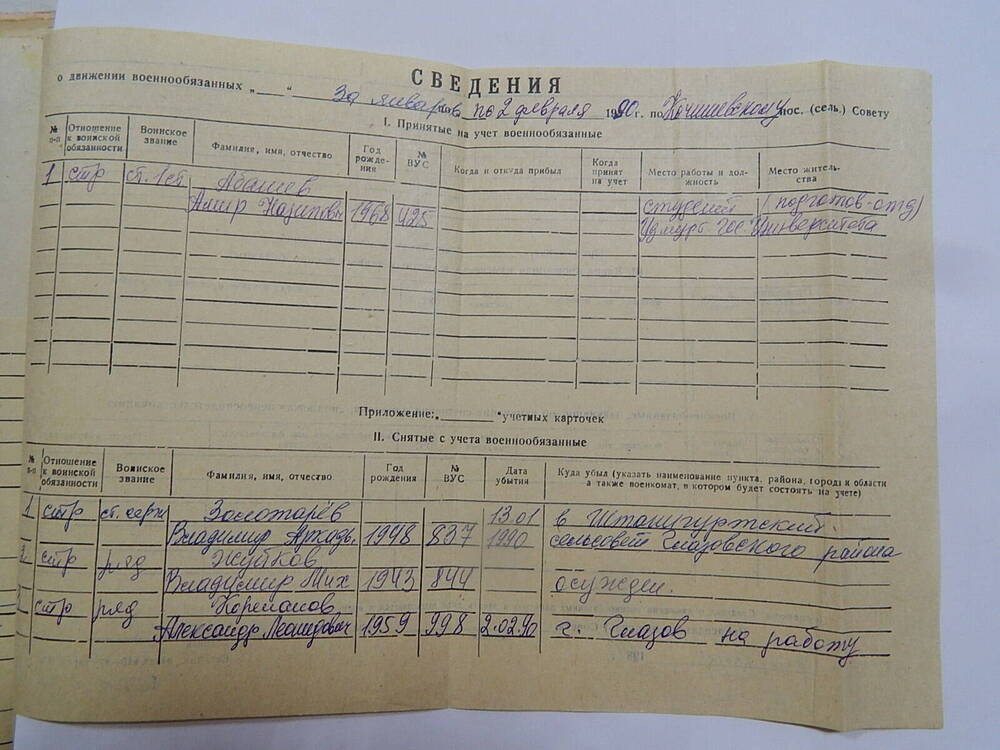 СВЕДЕНИЯ
о движении военнообязанных „ “ за январь по 2 февраля 1990 г. по Кочишевскому пос. (сель.) Совету
I. Принятые на учет военнообязанные
№ п-п Отношение к воинской обязанности Воинское звание Фамилия, имя, отчество Год рождения № ВУС Когда и откуда прибыл Когда принят на учет Место работы и должность Место жительства
1 стр ст. 1 ст Абашев
Амир Назипович 1968 425 студент (подготов-отд)
Удмурт Гос. Университета
Приложение: „ “ учетных карточек
II. Снятые с учета военнообязанные
№ п-п Отношение к воинской обязанности Воинское звание Фамилия, имя, отчество Год рождения № ВУС Дата убытия Куда убыл (указать наименование пункта, района, города и области
а также военкомат, в котором будет состоять на учете)
1 стр ст. серж Золотарёв 13.01 в Штанигуртский
Владимир Аркадь. 1948 837 1990 сельсовет Глазовского района
2. стр ряд Жуйков
Владимир Мих 1943 844 осужден.
стр ряд Корепанов
Александр Леонидович 1959 998 2.02.90 г. Глазов на работу